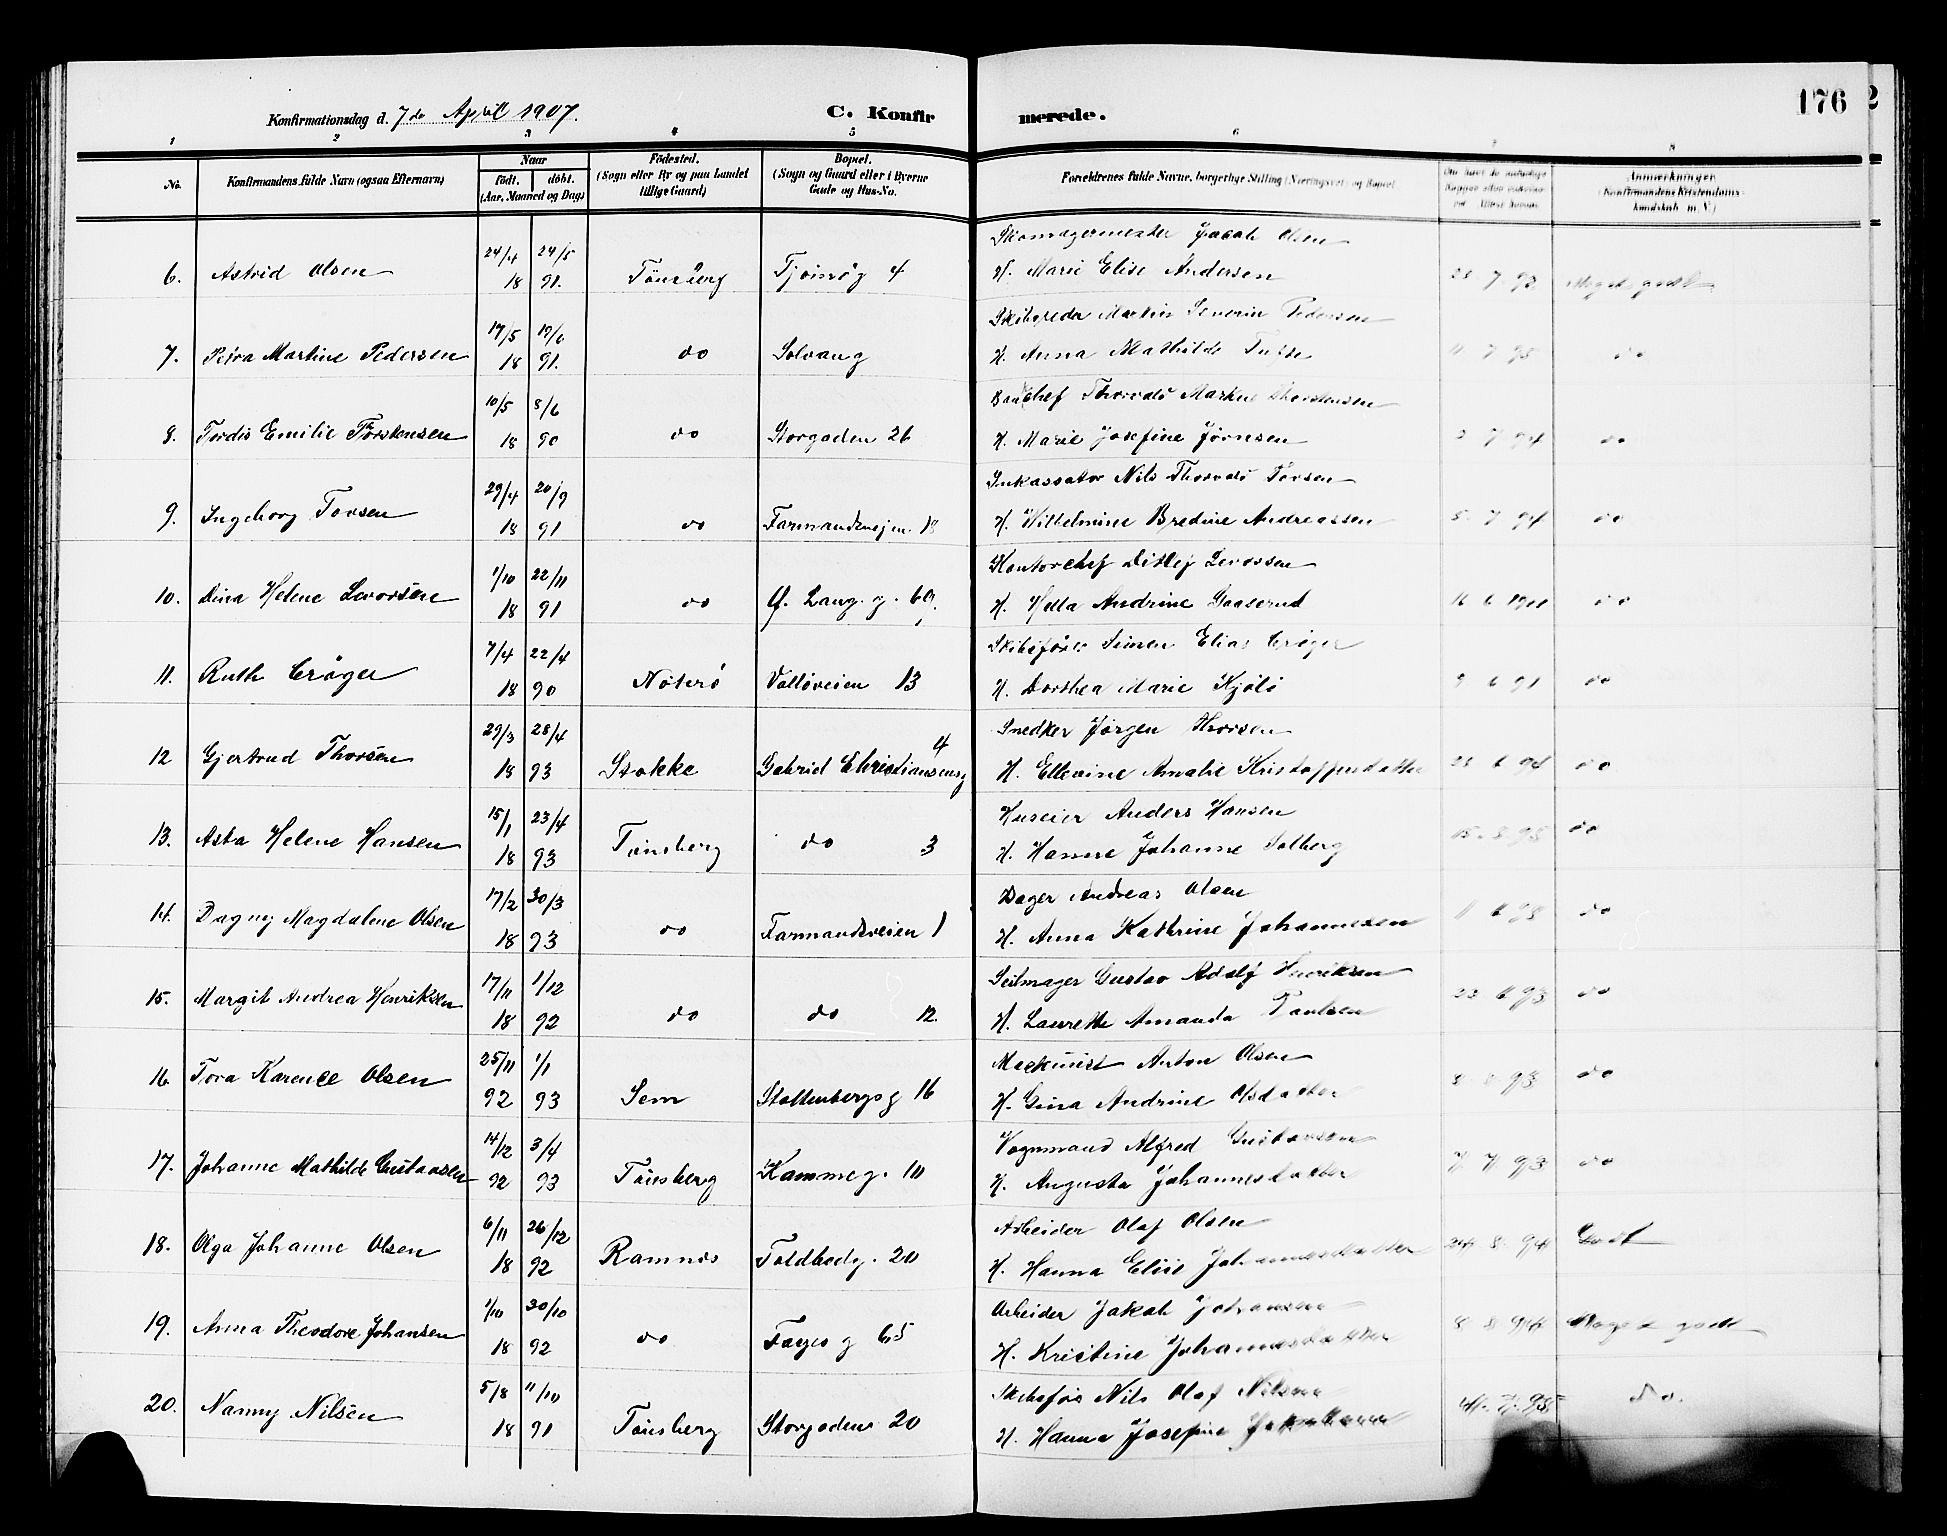 176
Konfirmationsdag d. 7de April 1907.
C. Konfirmerede.
1 2 3 4 5 6 7 8
No.
Konfirmandens fulde Navn (ogsaa Efternavn)
Naar
födt. döbt.
(Aar, Maaned og Dag)
Födested.
(Sogn eller By og paa Landet
tillige Gaard)
Bopæl.
(Sogn og Gaard eller i Byerne
Gade og Hus-No.
Forældrenes fulde Navne, borgerlige Stilling (Næringsvei) og Bopæl
Anmærkninger
(Konfirmandens Kristendoms-
kundskab m. V.)
24/4 24/5 Skomagermester Jacob Olsen
6. Astrid Olsen 18 91. Tönsberg 4 H. Marie Elise Andersen Meget godt
17/5 Skibsreder Martin Severin Pedersen
7. Petra Martine Pedersen 18 91. do Solvang H. Anna Mathilde do
10/5 8/6 Thorvald Markus Thorstensen
8. Tordis Emilie Torstensen 18 90 do Storgaden 26 H. Marie Josefine Jörnsen do
29/4 20/9 Inkassator Nils Thorvald Torsen
9. Ingeborg Torsen 18 91 do Farmandsvejen 18 H. Wilhelmine Bredine Andreassen 5 7 94 do
1/10 22/11 Kontorchef Ditlef
10. Dina Helene 18 91 do Ö. Lang. g. 69. H. Andrine Gaaserud do
7/4 22/4 Skibsförer Simen Elias Cröger
11. Ruth Cröger 18 90 Nöterö Valløveien 13 H. Dorthea Marie 9 6 91 do
29/3 28/4 Snedker Jörgen Thorsen
12 Gjertrud Thorsen 18 93 Stokke Gabriel Christiansensg 4 H. Ellevine Amalie Kristoffersdatter do
15/1 23/4 Huseier Anders Hansen
13. Asta Helene Hansen 18 93 Tönsberg do 3 H. Hanne Johanne Solberg do
17/2 30/3 Andreas Olsen
14. Dagny Magdalene Olsen 18 93 do Farmandsveien 1 H. Anna Kathrine Johannesen do
17/11 1/12 Seilmager Gustav Adolf Henriksen
15. Margit Andrea Henriksen 18 92 do do 12. H. Laurette Amanda Paulsen 23 6 93 do
25/11 1/1 Maskinist Anton Olsen
16. Tora Karense Olsen 92 93 Sem Stoltenbergs g 16 H. Gina Andrine do
14/12 3/4 Vognmand Alfred Gustavsen
17. Johanne Mathilde Gustavsen 92 93 Tönsberg Kammeg. 10 H. Augusta Johannesdatter 7 93 do
6/11 26/12 Arbeider Olaf Olsen
18. Olga Johanne Olsen 18 92 Ramnes Toldbodg. 20 H. Hanna Elise Johannesdatter 24 8. 94 Godt
1/10 30/10 Arbeider Jakob Johansen
19. Anna Theodore Johansen 18 92 do Farges g 65 H. Kristine Johannesdatter 8 8 94 Meget godt
5/8 11/10 Skibsför Nils Olaf Nilsen
20. Nanny Nilsen 18 91 Tönsberg Storgaden 20 H. Hanna Josefine do.